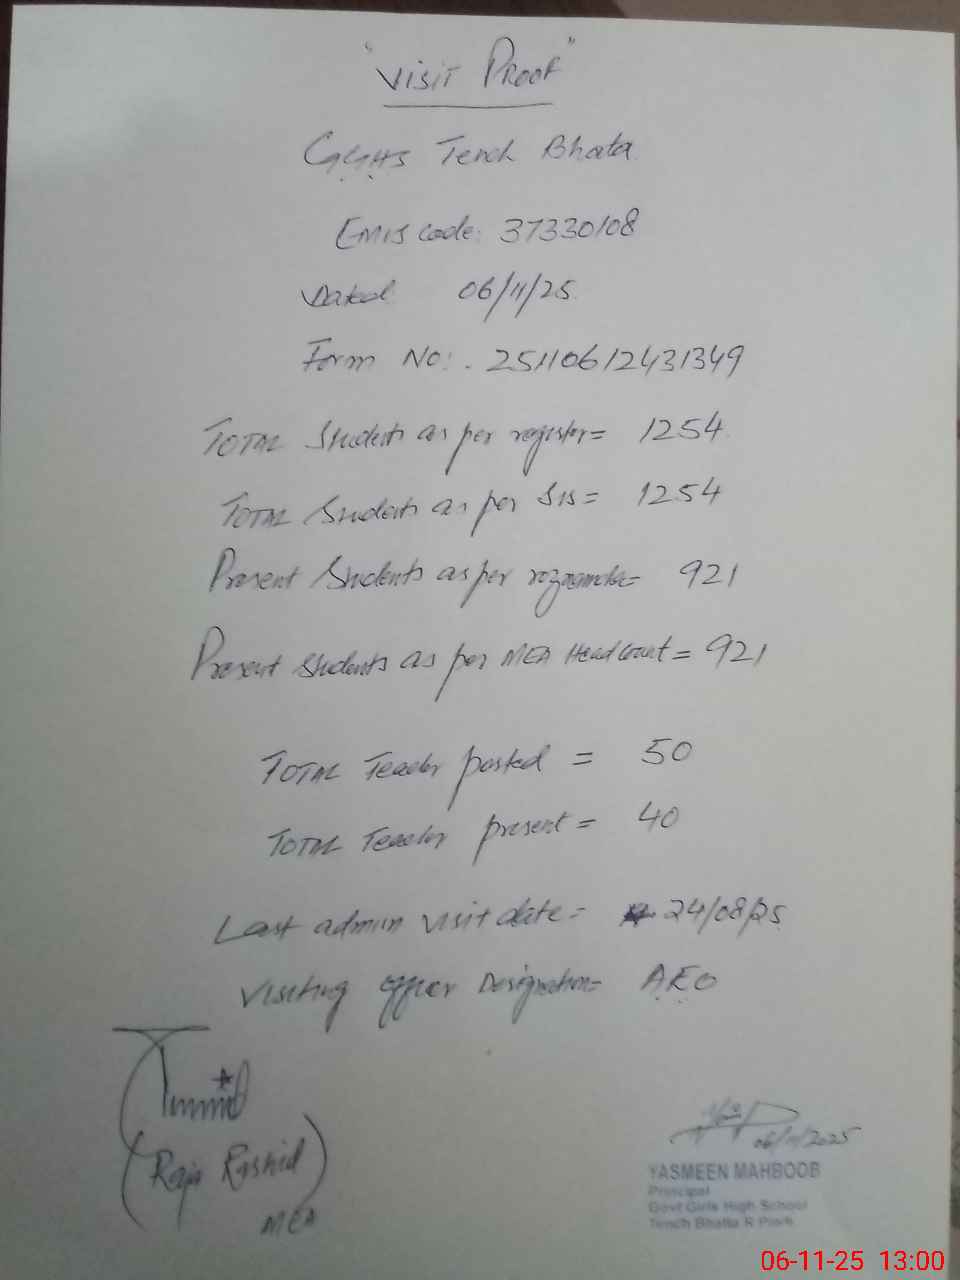 "Visit Proof"
GGHS Tench Bhata
EMIS code: 37330108
Dated 06/11/25
Form No: . 25110612431349
TOTAL Students as per register = 1254
TOTAL Students as per SIS = 1254
Present Students as per roznamcha = 921
Present Students as per MEA Head Count = 921
TOTAL Teacher posted = 50
TOTAL Teacher present = 40
Last admin visit date = 24/08/25
Visiting officer Designation = AEO
(Raja Rashid)
MEA
06/11/2025
YASMEEN MAHBOOB
Principal
Govt Girls High School
Tench Bhatta R Pindi
06-11-25 13:00